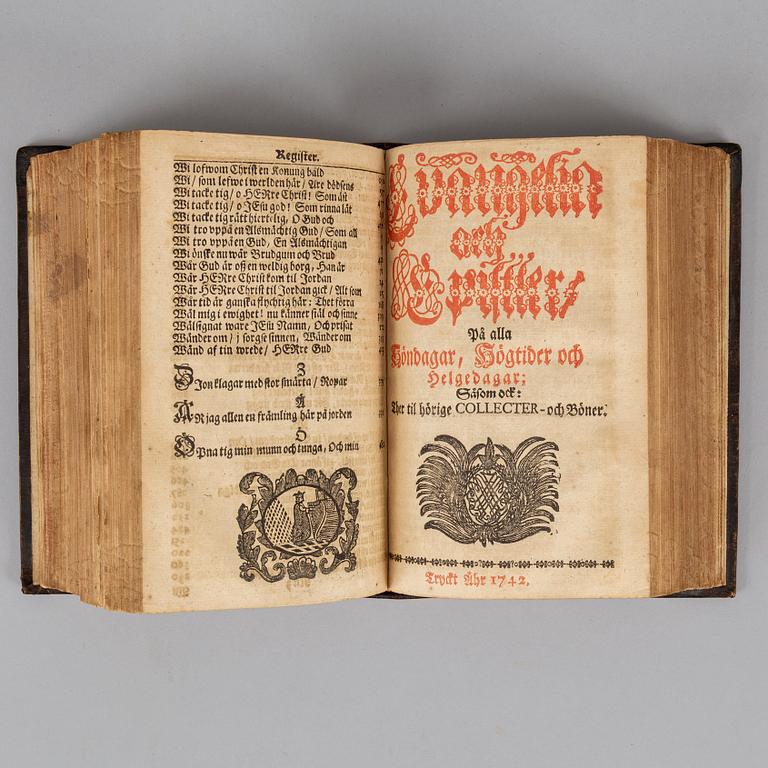 Register.
Wi lofwom Christ en Konung båld
Wi / som lefwe i werlden här / Äre dödsens
Wi tacke tig / o HERre Christ! Som äst
Wi tacke tig / o JEsu god! Som rinna lät
Wi tacke tig rätt hiertelig, O Gud och
Wi tro uppå en Alsmächtig Gud / Som all
Wi tro uppå en Gud, En Alsmächtigan
Wi önske nu wår Brudgum och Brud
Wår Gud är oß en weldig borg, Han är
Wår HERre Christ kom til Jordan
Wår HERre Christ til Jordan gick / Alt som
Wår tid är ganska flychtig här: Thet förra
Wäl mig i ewighet! nu känner siäl och sinne
Wälsignat ware JEsu Namn, Och prisat
Wänder om / j sorgse sinnen, Wänder om
Wänd af tin wrede / HERre Gud
Z
ZIon klagar med stor smärta / Ropar
Ä
ÄR jag allen en främling här på jorden
Ö
ÖPna tig min munn och tunga, Och min
Evangelia
och
Epistler /
På alla
Söndagar, Högtider och
Helgedagar;
Såsom ock:
Ther til hörige COLLECTER- och Böner.
Tryckt Åhr 1742.